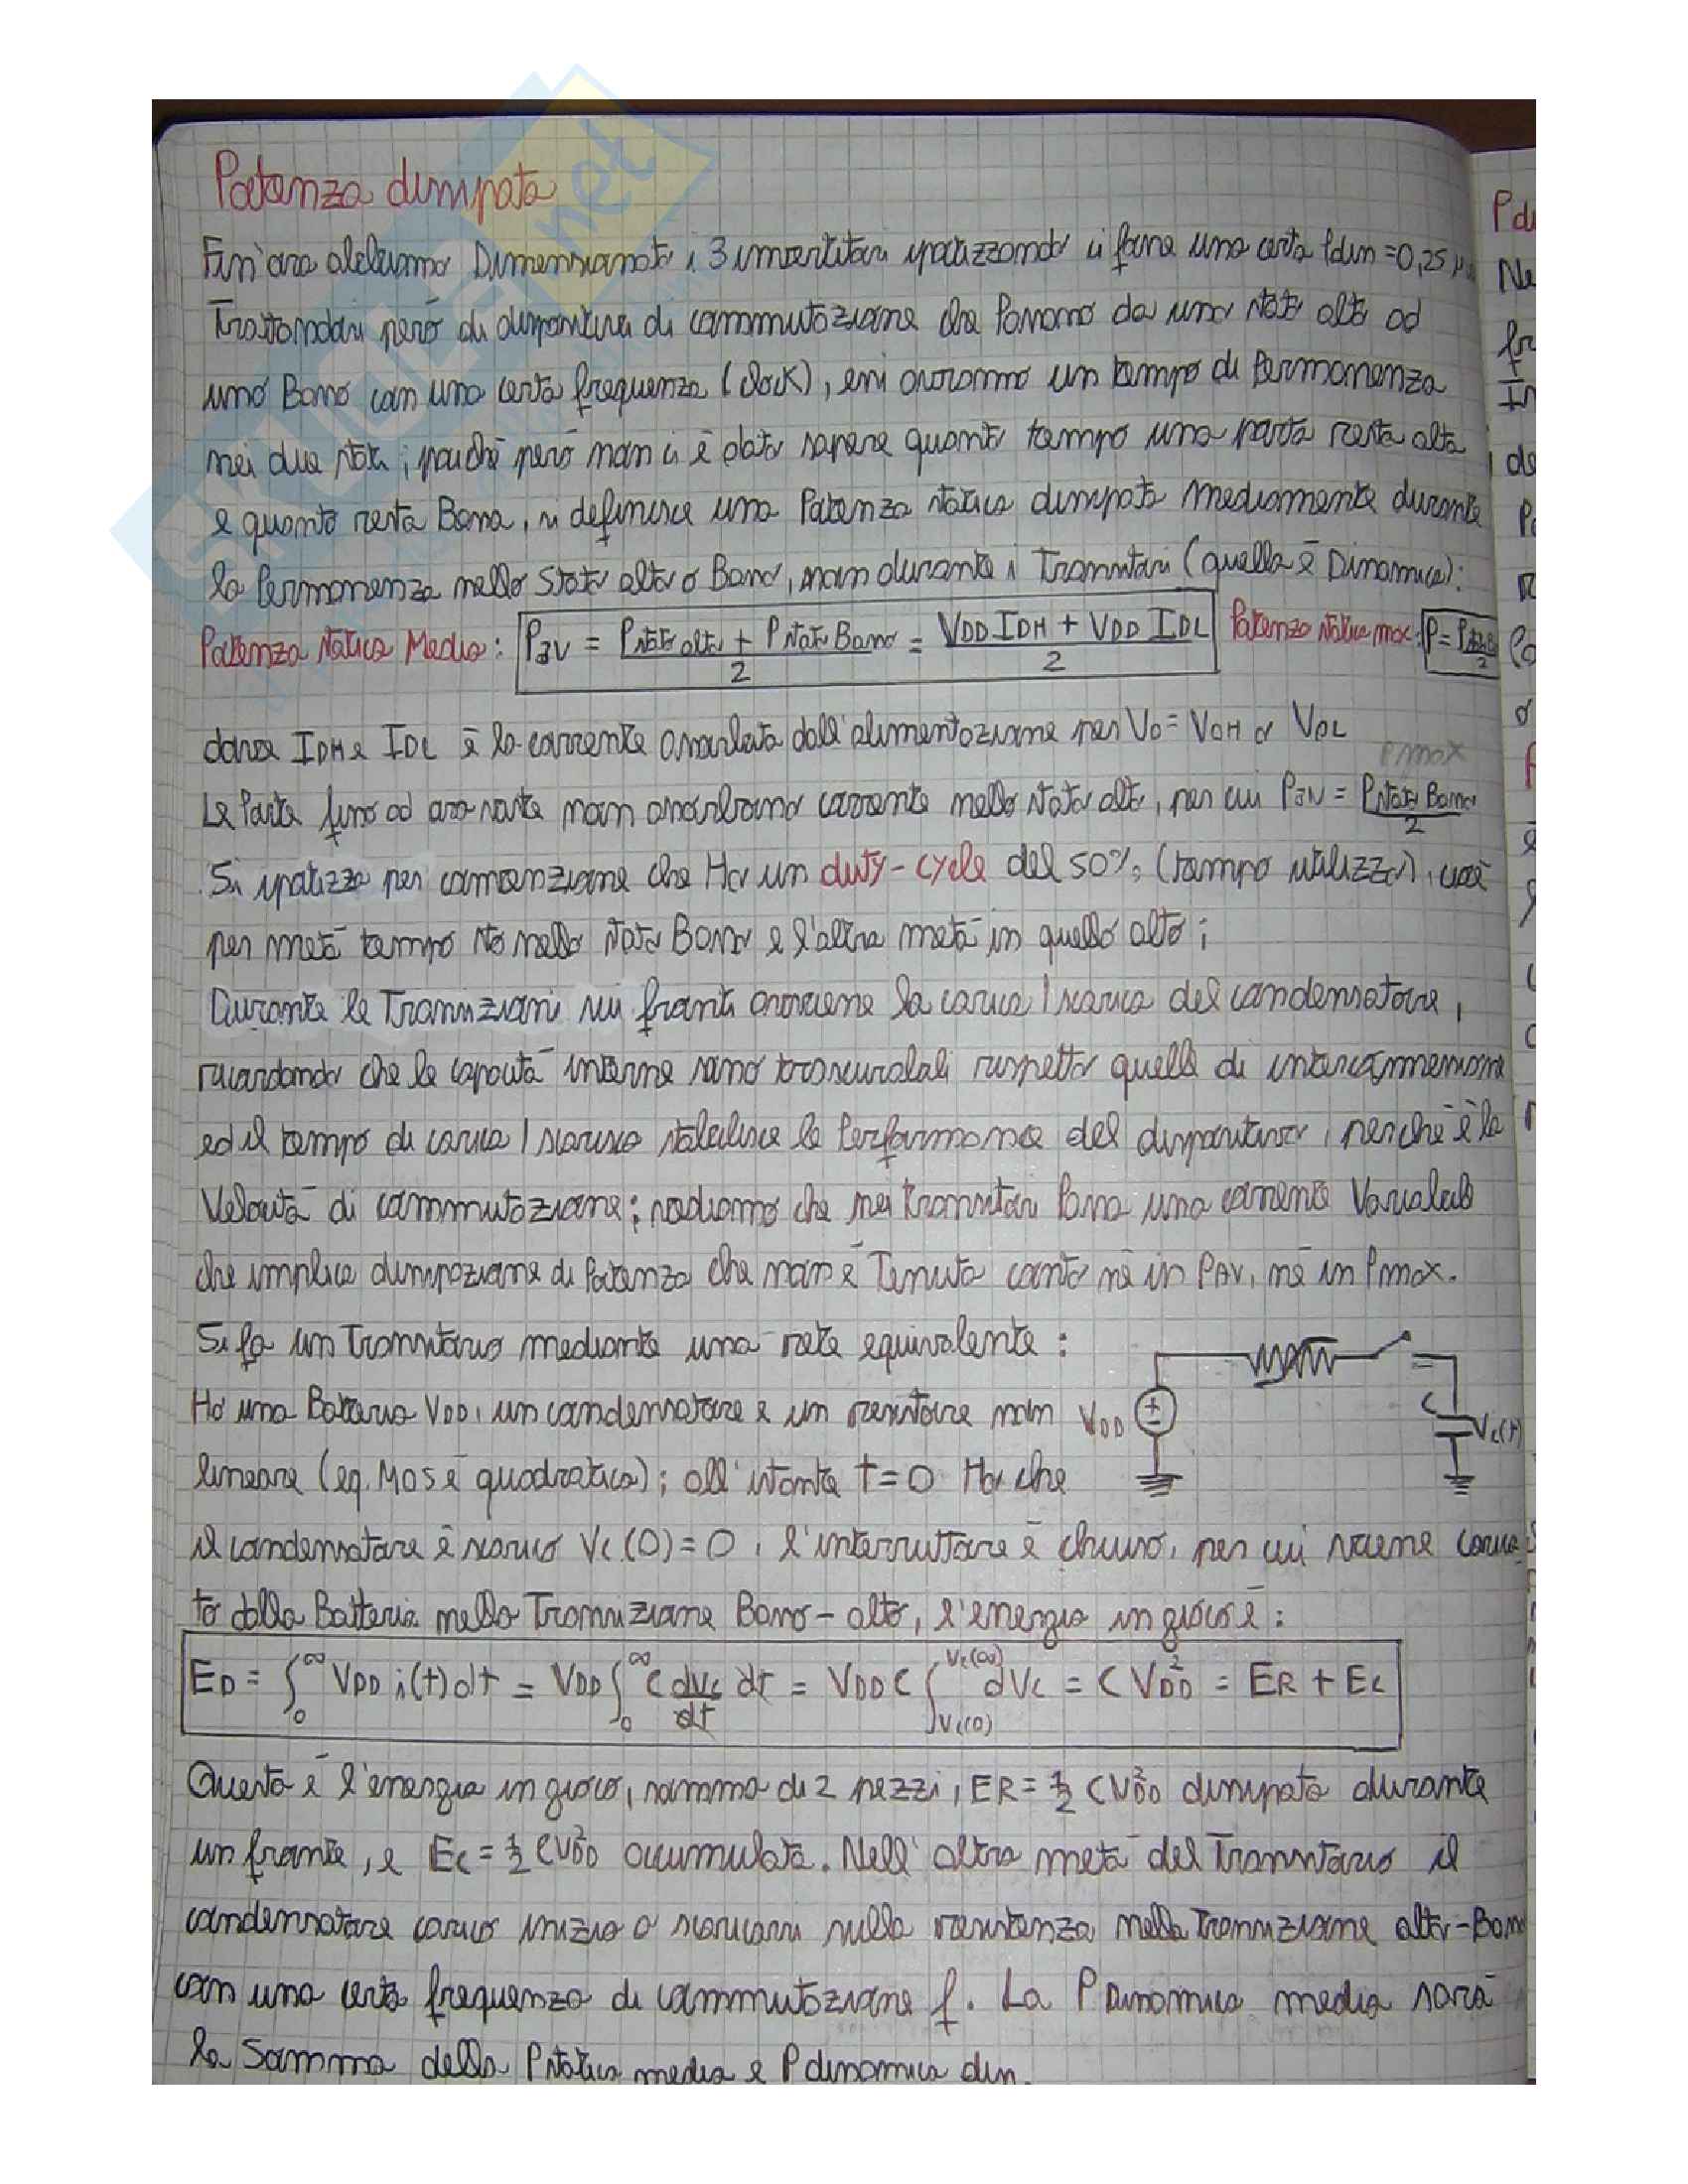 Potenza dissipata
Fin'ora abbiamo Dimensionato i 3 invertitori ipotizzando ci fosse una certa Pdiss = 0,25
Trattandosi però di dispositivi di commutazione che Passano da uno stato alto ad
uno Basso con una certa frequenza (clock), essi avranno un tempo di Permanenza
nei due stati; poiché però non ci è dato sapere quanto tempo una porta resta alta
e quanto resta Bassa, si definisce una Potenza statica dissipata mediamente durante
la Permanenza nello Stato alto o Basso, non durante i Transitori (quella è Dinamica):
Potenza statica Media: PAV = Pstato alto + Pstato Basso / 2 = VDD IDH + VDD IDL / 2 Potenza statica max:
dove IDH e IDL è la corrente assorbita dall'alimentazione per Vo = VOH o VOL
Pmax
Le Porte fino ad ora viste non assorbono corrente nello stato alto, per cui PAV = Pstato Basso / 2
Si ipotizza per convenzione che Ho un duty-cycle del 50% (tempo utilizzo), cioè
per metà tempo sto nello stato Basso e l'altra metà in quello alto;
Durante le Transizioni sui fronti avviene la carica/scarica del condensatore,
ricordando che le capacità interne sono trascurabili rispetto quelle di interconnessione
ed il tempo di carica/scarica stabilisce le Performance del dispositivo, perché è la
Velocità di commutazione; vediamo che nei transitori Passa una corrente Variabile
che implica dissipazione di Potenza che non è Tenuta conto né in PAV, né in Pmax.
Si fa un Transitorio mediante una rete equivalente:
Ho una Batteria VDD, un condensatore e un resistore non
VDD
C
Vc(t)
lineare (eq. MOS è quadratica); all'istante t=0 Ho che
il condensatore è scarico Vc(0)=0, l'interruttore è chiuso, per cui viene carica-
to dalla Batteria nella Transizione Basso-alto, l'energia in gioco è:
ED = ∫₀^∞ VDD i(t) dt = VDD ∫₀^∞ C dVc/dt dt = VDD C ∫_{Vc(0)}^{Vc(∞)} dVc = C VDD² = ER + EC
Questa è l'energia in gioco, somma di 2 pezzi, ER = 1/2 CVDD² dissipata durante
un fronte, e EC = 1/2 CVDD² accumulata. Nell'altra metà del Transitorio il
condensatore carico inizia a scaricarsi sulla resistenza nella Transizione alto-Basso
con una certa frequenza di commutazione f. La P Dinamica media sarà
la Somma della Pstatica media e Pdinamica diss.